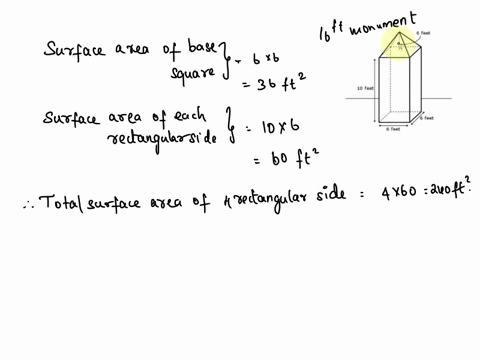 16 ft monument
6 feet
10 feet
6 feet
6 feet
Surface area of base square } = 6 × 6
= 36 ft²
Surface area of each rectangular side } = 10 × 6
= 60 ft²
∴ Total surface area of 4 rectangular side = 4 × 60 = 240 ft².